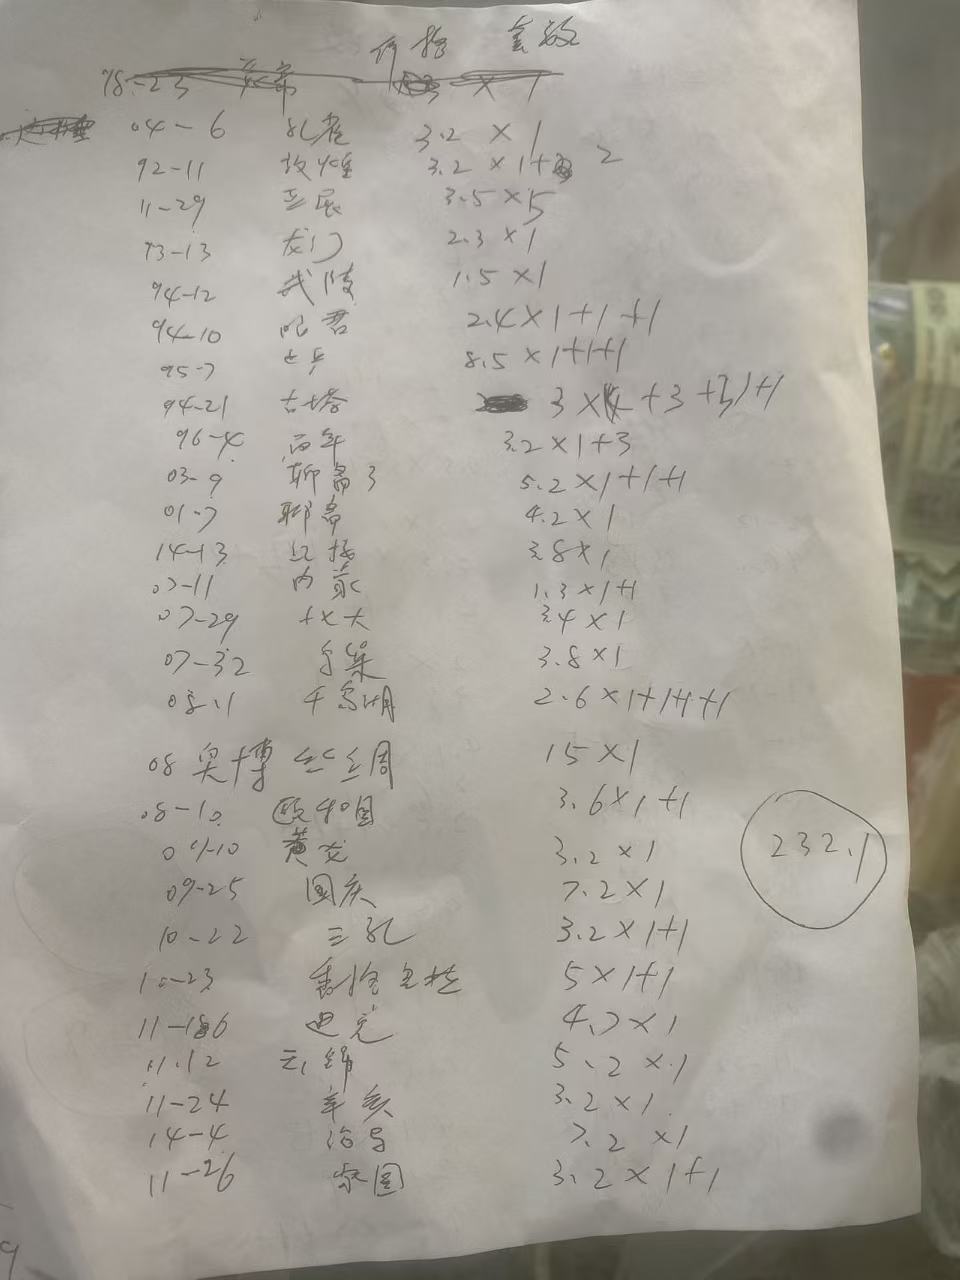 价格 套数
78-23 × 1
04-6 孔雀 3.2 × 1
92-11 敦煌 3.2 × 1+ 2
11-29 亚展 3.5 × 5
93-13 龙门 2.3 × 1
94-12 武陵 1.5 × 1
94-10 昭君 2.4 × 1+1+1
95-7 8.5 × 1+1+1
94-21 古塔 3 × (4+3+3)+1
96-4 百年 3.2 × 1+3
03-9 聊斋3 5.2 × 1+1+1
01-7 聊斋 4.2 × 1
14-13 红楼 3.8 × 1
07-11 内蒙 1.3 × 1+1
07-29 十七大 3.4 × 1
07-32 3.8 × 1
08-11 千岛湖 2.6 × 1+1+1+1
08 奥博 丝丝周 15 × 1
08-10 颐和园 3.6 × 1+1
09-10 黄龙 3.2 × 1
09-25 国庆 7.2 × 1
10-22 三孔 3.2 × 1+1
10-23 5 × 1+1
11-16 迪克 4.7 × 1
11-12 云锦 5.2 × 1
11-24 辛亥 3.2 × 1
14-4 7.2 × 1
11-26 家园 3.2 × 1+1
232.1
9